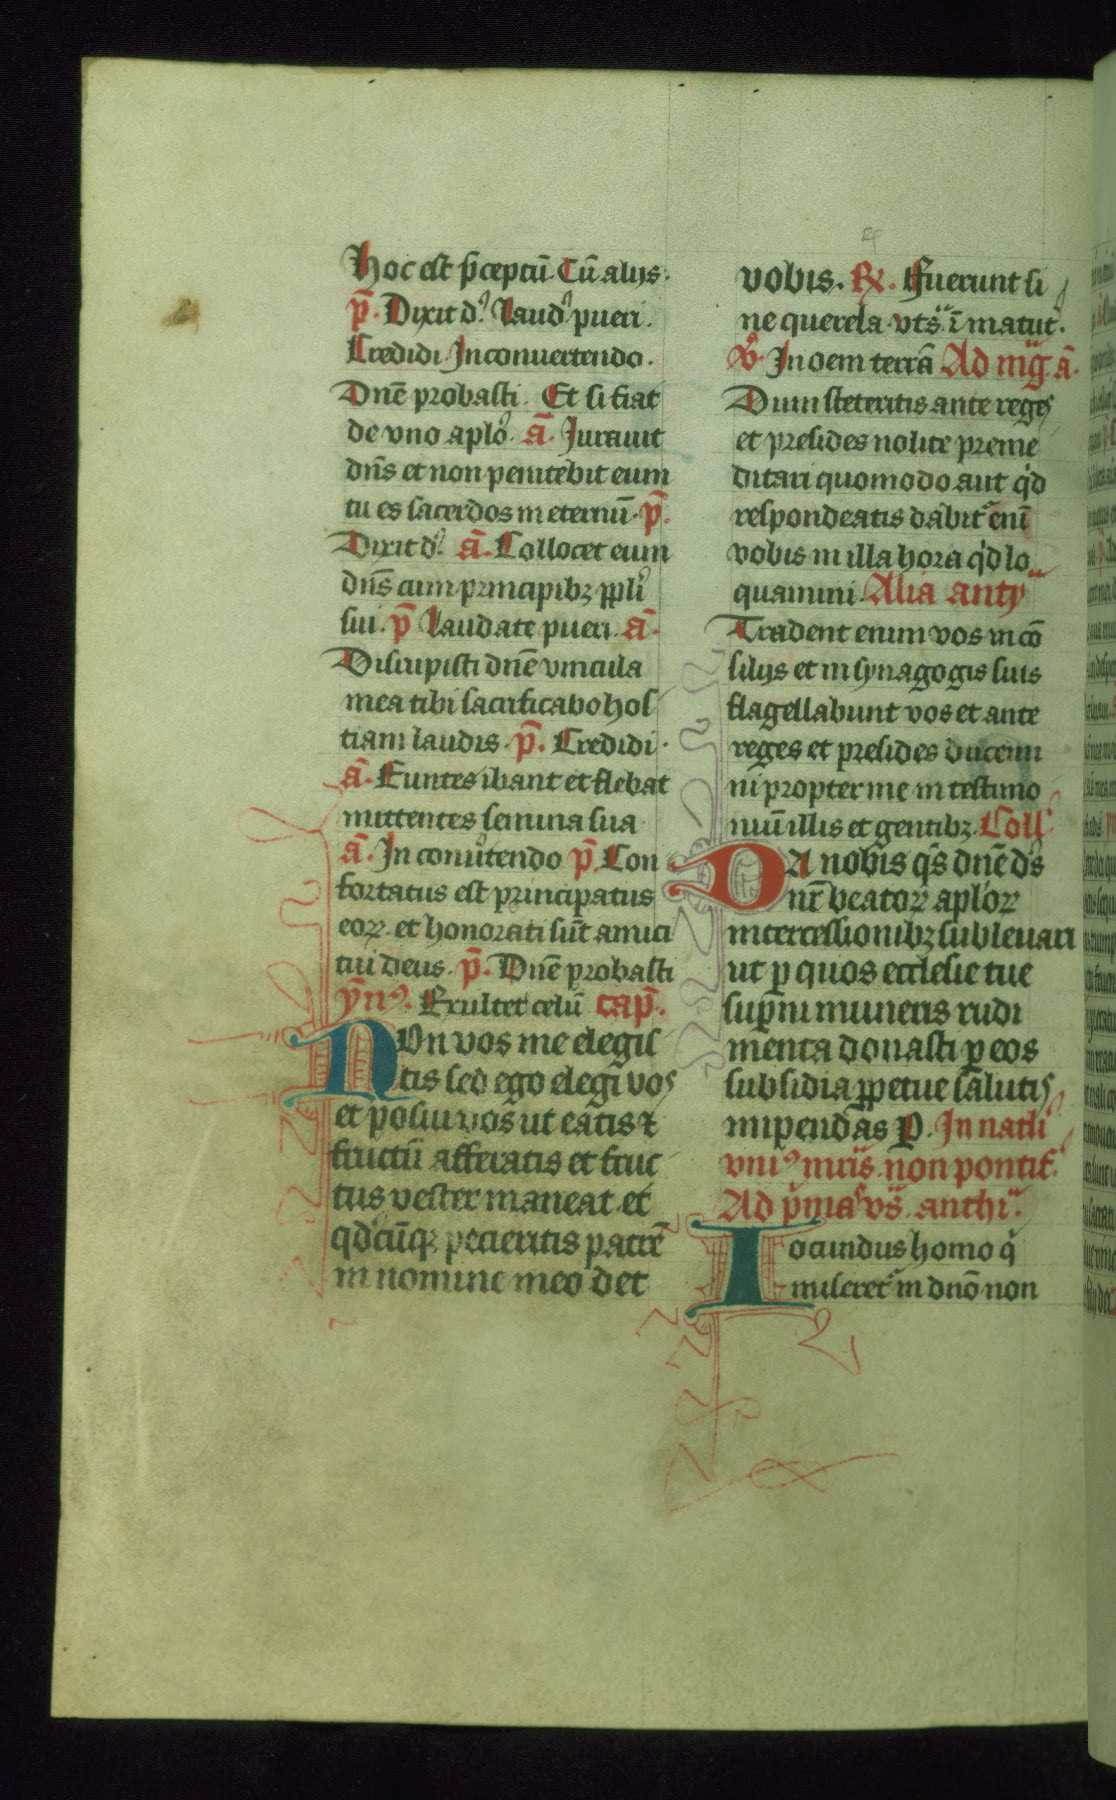 Hoc est p̄ceptū. Cū alijs.
p̄. Dixit d.ꝰ Laud.ꝰ pueri.
Credidi. In conuertendo.
Dn̄e probasti. Et si fiat
de vno apl̄o. a͞. Jurauit
dn̄s et non penitebit eum
tu es sacerdos in eternū. p̄.
Dixit d.ꝰ a͞. Collocet eum
dn̄s cum principibꝫ ppl̄i
sui. p̄ Laudate pueri. a͞.
Disrupisti dn̄e vincula
mea tibi sacrificabo hos
tiam laudis. p̄. Credidi.
a͞. Euntes ibant et flebāt
mittentes semina sua
a͞. In conūtendo p̄. Con
fortatus est principatus
eoꝝ. et honorati sūt amici
tui deus. p̄. Dn̄e probasti
ẏn̄ꝰ. Exultet celū cap̄.
Non vos me elegis
tis sed ego elegi vos
et posui vos ut eatis ⁊
fructū afferatis et fruc
tus vester maneat. et
qd̄cūqꝫ pecieritis patrē
in nomine meo det
vobis. R℣. Fuerunt si
ne querela. vt sͣ. ī matut᷑.
℣ꝰ. In oēm terrā Ad mg̅. a͞.
Dum steteritis ante reges
et presides nolite preme
ditari quomodo aut qͥd
respondeatis dabit᷑ enī
vobis in illa hora qͥd lo
quamini. Alia antyͣ
Tradent enim vos in cō
silijs et in synagogis suis
flagellabunt vos et ante
reges et presides ducemi
ni propter me in testimo
niū illis et gentibꝫ. Coll᷑
Da nobis qs̄ dn̄e ds̄
nr̄ beatoꝝ apl̄oꝝ
intercessionibꝫ subleuari
ut ꝑ quos ecclesie tue
sup̄ni muneris rudi
menta donasti ꝑ eos
subsidia ꝑpetue salutis
inpendas P. In natl̄i
vniꝰ mr̄is. non pontif᷑.
Ad p̄mas vs̄. anthiͣ.
Iocundus homo qͥ
miseret᷑ in dn̄o non